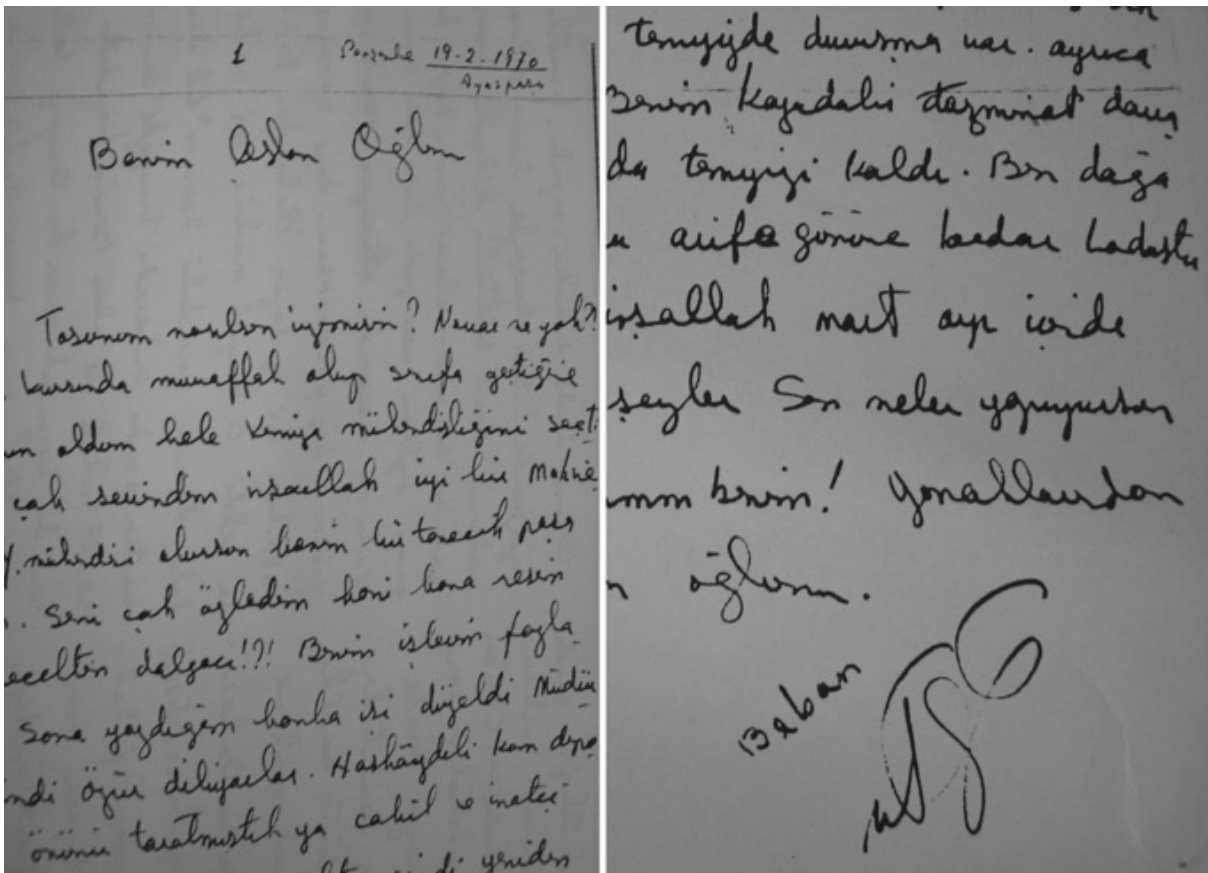 1
Perşembe 19-2-1970
Ayaspaşa
Benim Aslan Oğlum
Tosunum nasılsın iyimisin? Ne var ne yok?
kursunda muvaffak olup sınıfı geçtiğine
oldum hele Kimya mühendisliğini seçt
çok sevindim inşallah iyi bir Makine
Y. mühendisi olursun benim bir tanecik paşa
. Seni çok özledim hani bana resim
ecektin dalgacı!?! Benim işlerim fazla
Sana yazdığım banka işi düzeldi Müdür
ndi özür diliyorlar.
önünü taratmıştık ya cahil ve inatçı
şimdi yeniden
temyizde duruşma var. ayrıca
Benim tazminat dava
da temyizi kaldı. Ben daha
arife gününe kadar
inşallah mart ayı içinde
şeyler Sen neler yapıyorsun
ımm benim! Yanaklarından
oğlum.
Baban